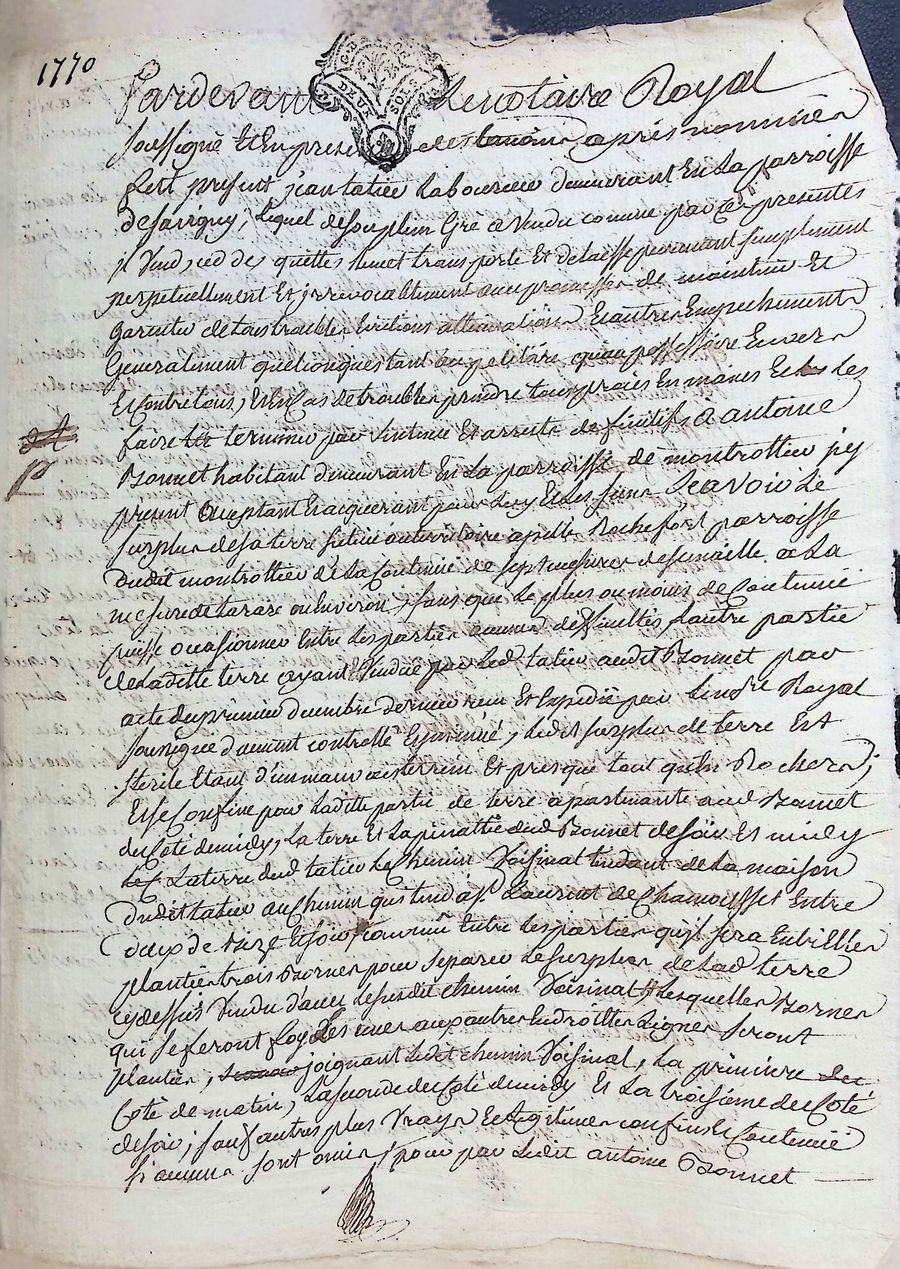 1770
Pardevant Le notaire Royal
soussigné Et En presence des temoins après nommés
fut present jean tatieu Laboureur demeurant En La parroisse
de savigny, Lequel de son plein Gré a Vendu comme par ces presentes
il Vend, cede, quitte, remet transporte Et delaisse purement simplement
perpetuellement Et irrevocablement avec promesse de maintenir Et
garentir de tous troubles Evictions allienations Et autres Empechements
Generalement quelconques tant au petitoire qu'au possessoire Envers
Et contre tous, Et En cas de trouble prendre tous procès En mains Et les
faire terminer par sentence Et arrests definitifs a antoine
Bonnet habitant demeurant En La parroisse de montrottier icy
present acceptant Et acquerant pour Luy Et Les siens Scavoir Le
surplus de sa terre situé au territoire appellé Rochefort parroisse
dudit montrottier de La Contenue de sept mesures de semaille a La
mesure de tarare ou Environ, sans que Le plus ou moins de Contenue
puisse occasionner Entre Les parties aucunes difficultés, L'autre partie
de Laditte terre ayant Vendue par Led tatieu audit Bonnet par
acte du premier decembre dernier recu Et Expedié par Le nore Royal
soussigné duement controllé Et insinué, Ledit surplus de terre Est
sterile Etant d'un mauvais terrein Et presque tout qu'en Rochers;
Et se Confine par Ladite partie de terre apartenante aud Bonnet
du Coté de midy, La terre Et La pinattée dud Bonnet de soir Et midy
La terre dud tatieu Le Chemin Voisinal tendant de La maison
dudit tatieu au Chemin qui tend a St Laurent de Chamousset Entre
deux de bize Et soir, convenu Entre Les parties qu'il sera Entre Elles
planté trois Bornes pour separer Le surplus de Lad terre
cy dessus Vendu d'avec Le susdit chemin Voisinal Lesquelles Bornes
qui se feront foy Les unes aux autres En droittes Lignes seront
plantées, joignant Ledit chemin Voisinal, La premiere du
Coté de matin, La seconde du Coté de midy Et La troisième du Coté
de soir; sauf autres plus Vrays Et Legitimes confins Et Contenue
si aucuns sont omis, pour par Ledit antoine Bonnet